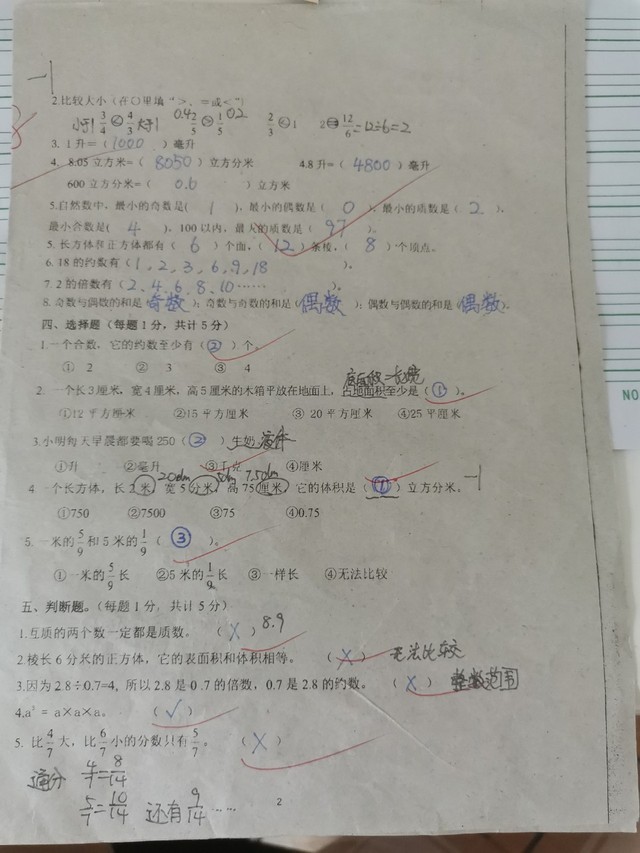 -1
2.比较大小（在○里填">、=或<"）
小于1 3/4 < 4/3 大于1 0.4 2/5 > 1/5 0.2 2/3 < 1 2 = 12/6 =12÷6=2
3. 1升=（1000）毫升
4. 8.05立方米=（8050）立方分米 4.8升=（4800）毫升
600立方分米=（0.6）立方米
5.自然数中，最小的奇数是（1），最小的偶数是（0），最小的质数是（2），
最小合数是（4），100以内，最大的质数是（97）。
5. 长方体和正方体都有（6）个面，（12）条棱，（8）个顶点。
6. 18的约数有（1, 2, 3, 6, 9, 18）。
7. 2的倍数有（2、4、6、8、10……）。
8. 奇数与偶数的和是（奇数）；奇数与奇数的和是（偶数）；偶数与偶数的和是（偶数）。
四、选择题（每题1分，共计5分）
1.一个合数，它的约数至少有（②）个。
① 2 ② 3 ③ 4
2. 一个长3厘米，宽4厘米，高5厘米的木箱平放在地面上，占地面积至少是（①）。
①12平方厘米 ②15平方厘米 ③ 20平方厘米 ④25平方厘米
3.小明每天早晨都要喝250（②）牛奶 液体
①升 ②毫升 ③千克 ④厘米
20dm 5dm 7.5dm
4 一个长方体，长2米，宽5分米，高75厘米，它的体积是（①）立方分米。 -1
①750 ②7500 ③75 ④0.75
5. 一米的5/9和5米的1/9（③）。
① 一米的5/9长 ②5米的1/9长 ③一样长 ④无法比较
五、判断题。（每题1分，共计5分）
1.互质的两个数一定都是质数。（×）8.9
2.棱长6分米的正方体，它的表面积和体积相等。（×）无法比较
3.因为2.8÷0.7=4，所以2.8是0.7的倍数，0.7是2.8的约数。（×）整数范围
4.a³ = a×a×a。（√）
5. 比4/7大，比6/7小的分数只有5/7。（×）
通分 4/7=8/14
5/7=10/14 还有9/14……
2
NO